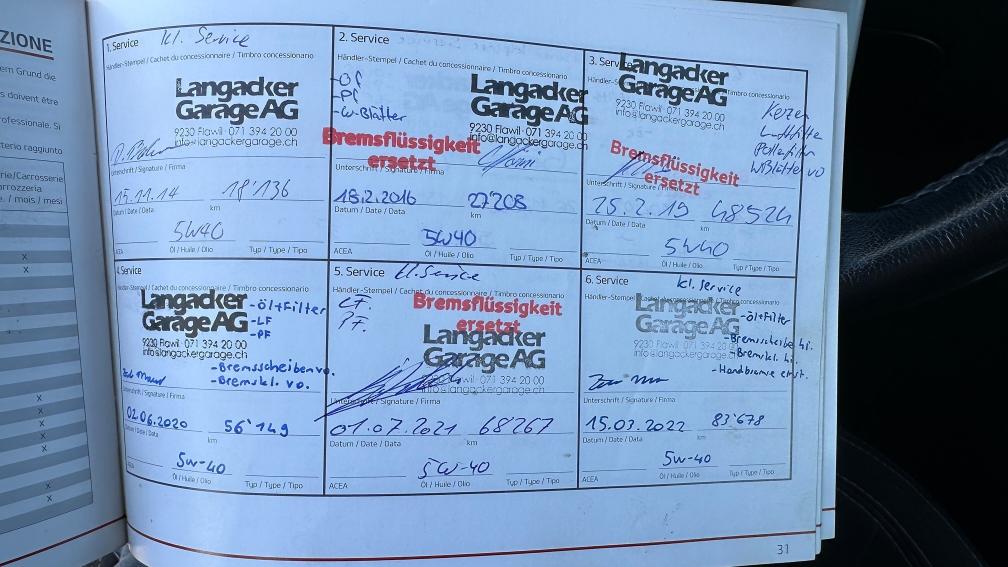 ZIONE
em Grund die
s doivent être
professionale. Si
terio raggiunto
rie/Carrosserie
rrozzeria
e. / mois / mesi
x
x
x
x
x
x
x
x
1. Service Kl. Service
Händler-Stempel / Cachet du concessionnaire / Timbro concessionario
Langacker
Garage AG
9230 Flawil · 071 394 20 00
info@langackergarage.ch
Unterschrift / Signature / Firma
15.11.14 18'136
Datum / Date / Data km
5W40
ACEA Öl / Huile / Olio Typ / Type / Tipo
2. Service
Händler-Stempel / Cachet du concessionnaire / Timbro concessionario
-OF
-PF
-W-Blätter
Langacker
Garage AG
9230 Flawil · 071 394 20 00
info@langackergarage.ch
Bremsflüssigkeit
ersetzt
Unterschrift / Signature / Firma
18.2.2016 27'208
Datum / Date / Data km
5W40
ACEA Öl / Huile / Olio Typ / Type / Tipo
3. Service
Händler-
Langacker
Garage AG
9230 Flawil · 071 394 20 00
info@langackergarage.ch
Kerzen
Luftfilter
Pollenfilter
W.Blätter vo
Bremsflüssigkeit
ersetzt
Unterschrift / Signature / Firma
25.2.19 48524
Datum / Date / Data km
5W40
ACEA Öl / Huile / Olio Typ / Type / Tipo
4. Service
Händler-Stempel / Cachet du concessionnaire / Timbro concessionario
Langacker
Garage AG
9230 Flawil · 071 394 20 00
info@langackergarage.ch
-Öl+Filter
-LF
-PF
-Bremsscheiben vo.
-Bremskl. vo.
Unterschrift / Signature / Firma
02.06.2020 56'149
Datum / Date / Data km
5W-40
ACEA Öl / Huile / Olio Typ / Type / Tipo
5. Service Kl. Service
Händler-Stempel / Cachet du concessionnaire / Timbro concessionario
LF.
PF.
Bremsflüssigkeit
ersetzt
Langacker
Garage AG
9230 Flawil · 071 394 20 00
info@langackergarage.ch
Unterschrift / Signature / Firma
01.07.2021 68'267
Datum / Date / Data km
5W-40
ACEA Öl / Huile / Olio Typ / Type / Tipo
6. Service Kl. Service
Händler-Stempel / Cachet du concessionnaire / Timbro concessionario
Langacker
Garage AG
9230 Flawil · 071 394 20 00
info@langackergarage.ch
-Öl+Filter
-Bremsscheibe hi.
-Bremskl. hi.
-Handbremse einst.
Unterschrift / Signature / Firma
15.03.2022 83'678
Datum / Date / Data km
5W-40
ACEA Öl / Huile / Olio Typ / Type / Tipo
31